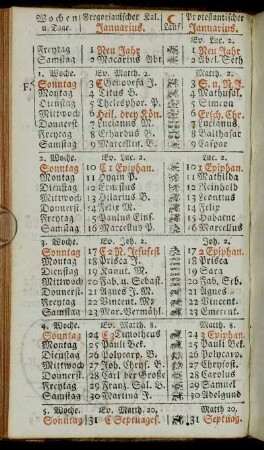 Wochen Gregorianischer Kal. ☾ Protestantischer
u. Tage. Januarius. Lauf Januarius.
Ev. Luc. 2.
Freytag 1 Neu Jahr 1 Neu Jahr
Samstag 2 Macarius Abt 2 Abel. Seth
1. Woche. Ev. Matth. 2. Matth. 2.
Sonntag 3 C Genovefa J. 3 S. n. N. J.
Montag 4 Titus B. 4 Methusal.
Dienstag 5 Thelesphor. P. 5 Simeon
Mittwoch 6 Heil. drey Kön. 6 Ersch. Chr.
Donnerst. 7 Lucianus M. 7 Lucianus.
Freytag 8 Erhardus B. 8 Balthasar
Samstag 9 Marcellin. B. 9 Caspar
2. Woche. Ev. Luc. 2. Luc. 2.
Sonntag 10 C 1 Epiphan. 10 1 Epiphan.
Montag 11 Hygin P. 11 Mathilda
Dienstag 12 Ernestus 12 Reinhold
Mittwoch 13 Hilarius B. 13 Leontius
Donnerst. 14 Felix M. 14 Felix
Freytag 15 Paulus Einf. 15 Habacuc
Samstag 16 Marcellus P. 16 Marcellus
3. Woche. Ev. Joh. 2. Joh. 2.
Sonntag 17 C 2 N. Jesufest 17 2 Epiphan.
Montag 18 Prisca J. 18 Prisca
Dienstag 19 Kanut. M. 19 Sara
Mittwoch 20 Fab. u. Sebast. 20 Fab. Seb.
Donnerst. 21 Agnes J. M. 21 Agnes
Freytag 22 Vincent. M. 22 Vincent.
Samstag 23 Mar. Vermähl. 23 Emerent.
4. Woche. Ev. Matth. 8. Matth. 8.
Sonntag 24 C 3 Timotheus 24 3 Epiphan.
Montag 25 Pauli Bek. 25 Pauli Bek.
Dienstag 26 Polycarp. B. 26 Polycarp.
Mittwoch 27 Joh. Chrys. B. 27 Chrysost.
Donnerst. 28 Carl der Große 28 Carolus
Freytag 29 Franz. Sal. B. 29 Samuel
Samstag 30 Martina J. 30 Adelgund
5. Woche. Ev. Matth. 20. Matth. 20.
Sonntag 31 C Septuages. 31 Septuag.